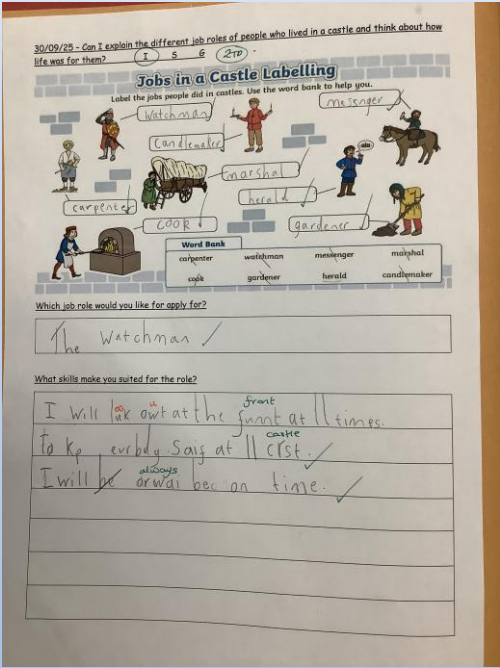 30/09/25 - Can I explain the different job roles of people who lived in a castle and think about how
life was for them? I S G 2TO
Jobs in a Castle Labelling
Label the jobs people did in castles. Use the word bank to help you.
messenger
watchman
candlemaker
marshal
herald
carpenter
cook
gardener
Word Bank
carpenter watchman messenger marshal
cook gardener herald candlemaker
Which job role would you like for apply for?
The Watchman
What skills make you suited for the role?
front
I will luk owt at the frunt at ll times.
castle
to kp evrbdy Saif at ll crst.
always
I will be orwai bec on time.